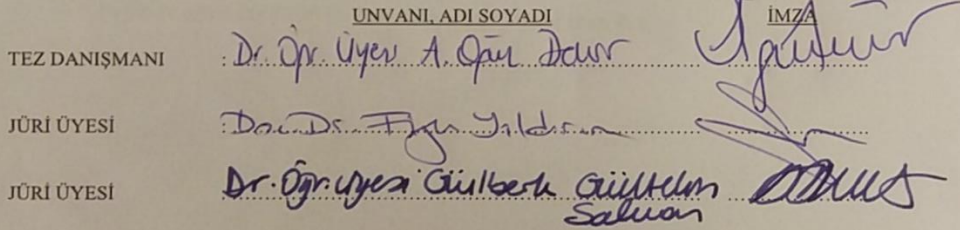 UNVANI, ADI SOYADI İMZA
TEZ DANIŞMANI : Dr. Öğr. Üyesi A.
JÜRİ ÜYESİ : Doc. Dr. Yıldırım
JÜRİ ÜYESİ Dr. Öğr. Üyesi Gülberk Gültekin
Salman